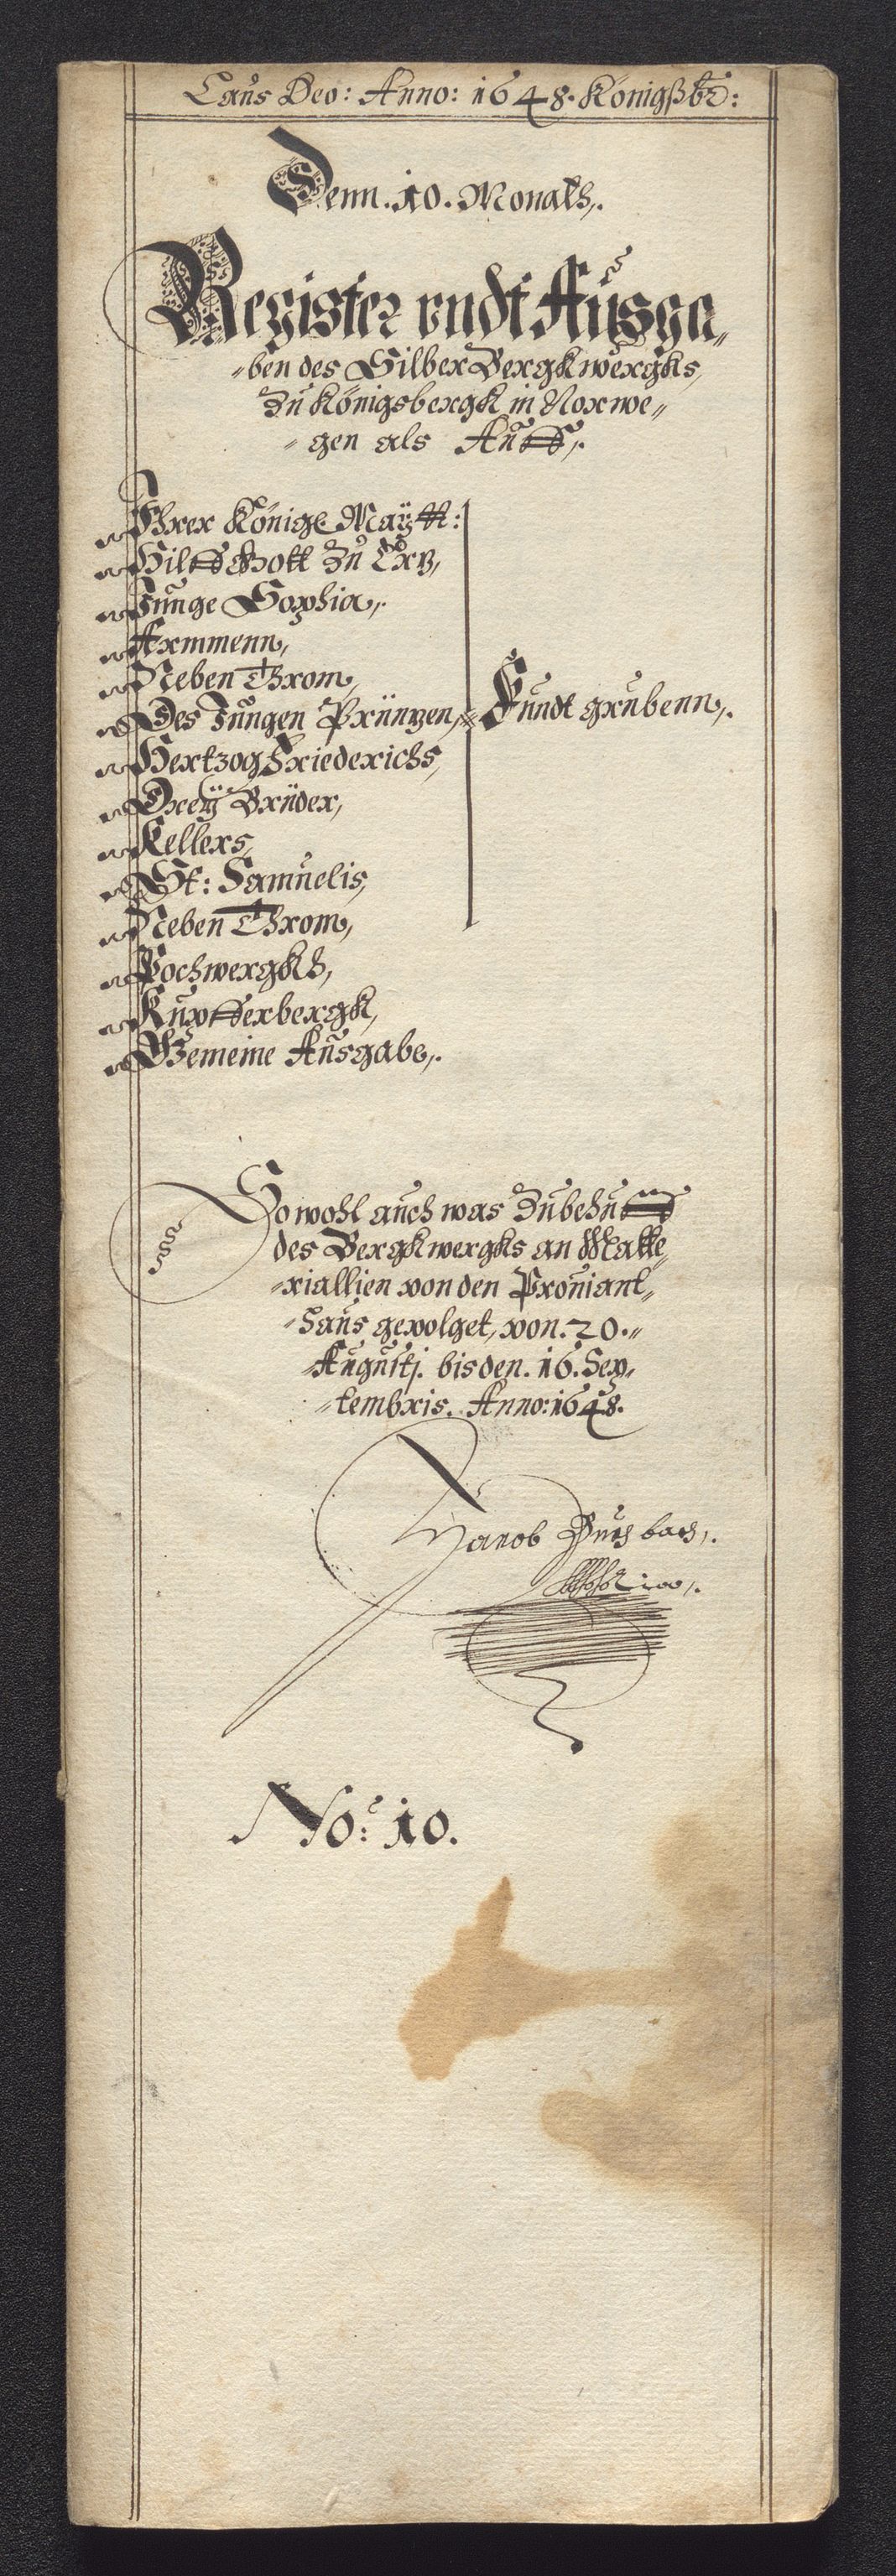 Laus Deo: Anno: 1648. Königßb:
Denn. 10. Monats,.
Register vndt Ausga„
„ben des Silber Bergkwergks,
Zu Königsbergk in Norwe„
„gen als Auff,.
Ihrer Könige Maÿtt:
Hilff Gott Zu Ertz,
Junge Sophia,.
Armmenn,
Neben Throm,
Des Jungen Printzen, Fundt grubenn,.
Hertzog Friederichs,
Dreÿ Brüder,
Kellers,
St: Samuelis,
Neben Throm,
Pochwergkh,
Kupfferbergk,
Gemeine Ausgabe,.
So wohl auch was Zubehuff
des Bergkwergks an Matte„
„riallien von den Proviant„
„haus gevolget, von. 20.„
„Augusti. bis den. 16. Sep„
„tembris. Anno: 1648.
Jacob Buchbach,.
No: 10.